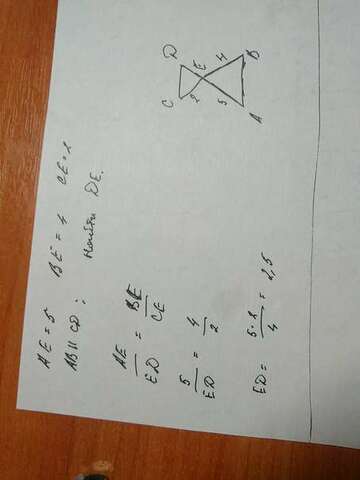 AE = 5 BE = 4 CE = 2
AB || CD; Найти DE.
AE/ED = BE/CE
5/ED = 4/2
ED = 5·2/4 = 2,5
D
E
C
2
4
5
B
A